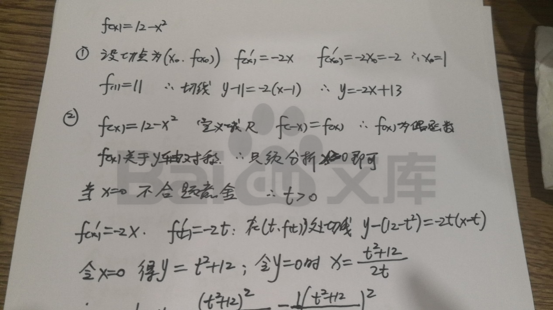 f(x)=12-x²
① 设切点为(x₀,f(x₀)) f'(x)=-2x f'(x₀)=-2x₀=-2 ∴x₀=1
f(1)=11 ∴切线 y-11=-2(x-1) ∴y=-2x+13
② f(x)=12-x² 定义域R f(-x)=f(x) ∴f(x)为偶函数
f(x)关于y轴对称 ∴只须分析x≥0即可
当x=0 不合题意舍 ∴t>0
f'(x)=-2x. f'(t)=-2t; 在(t,f(t))处切线 y-(12-t²)=-2t(x-t)
令x=0 得y=t²+12; 令y=0时 x=\frac{t²+12}{2t}
(t²+12)² 1(t²+12)²
Bai 文库